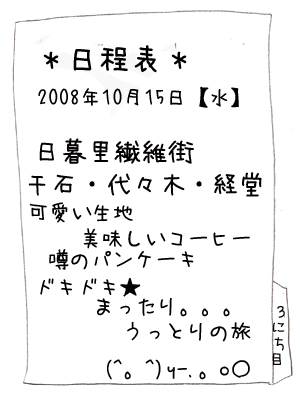 ＊日程表＊
2008年10月15日【水】
日暮里繊維街
千石・代々木・経堂
可愛い生地
美味しいコーヒー
噂のパンケーキ
ドキドキ★
まったり。。。
うっとりの旅
(^。^)y-.。o○
3にち目